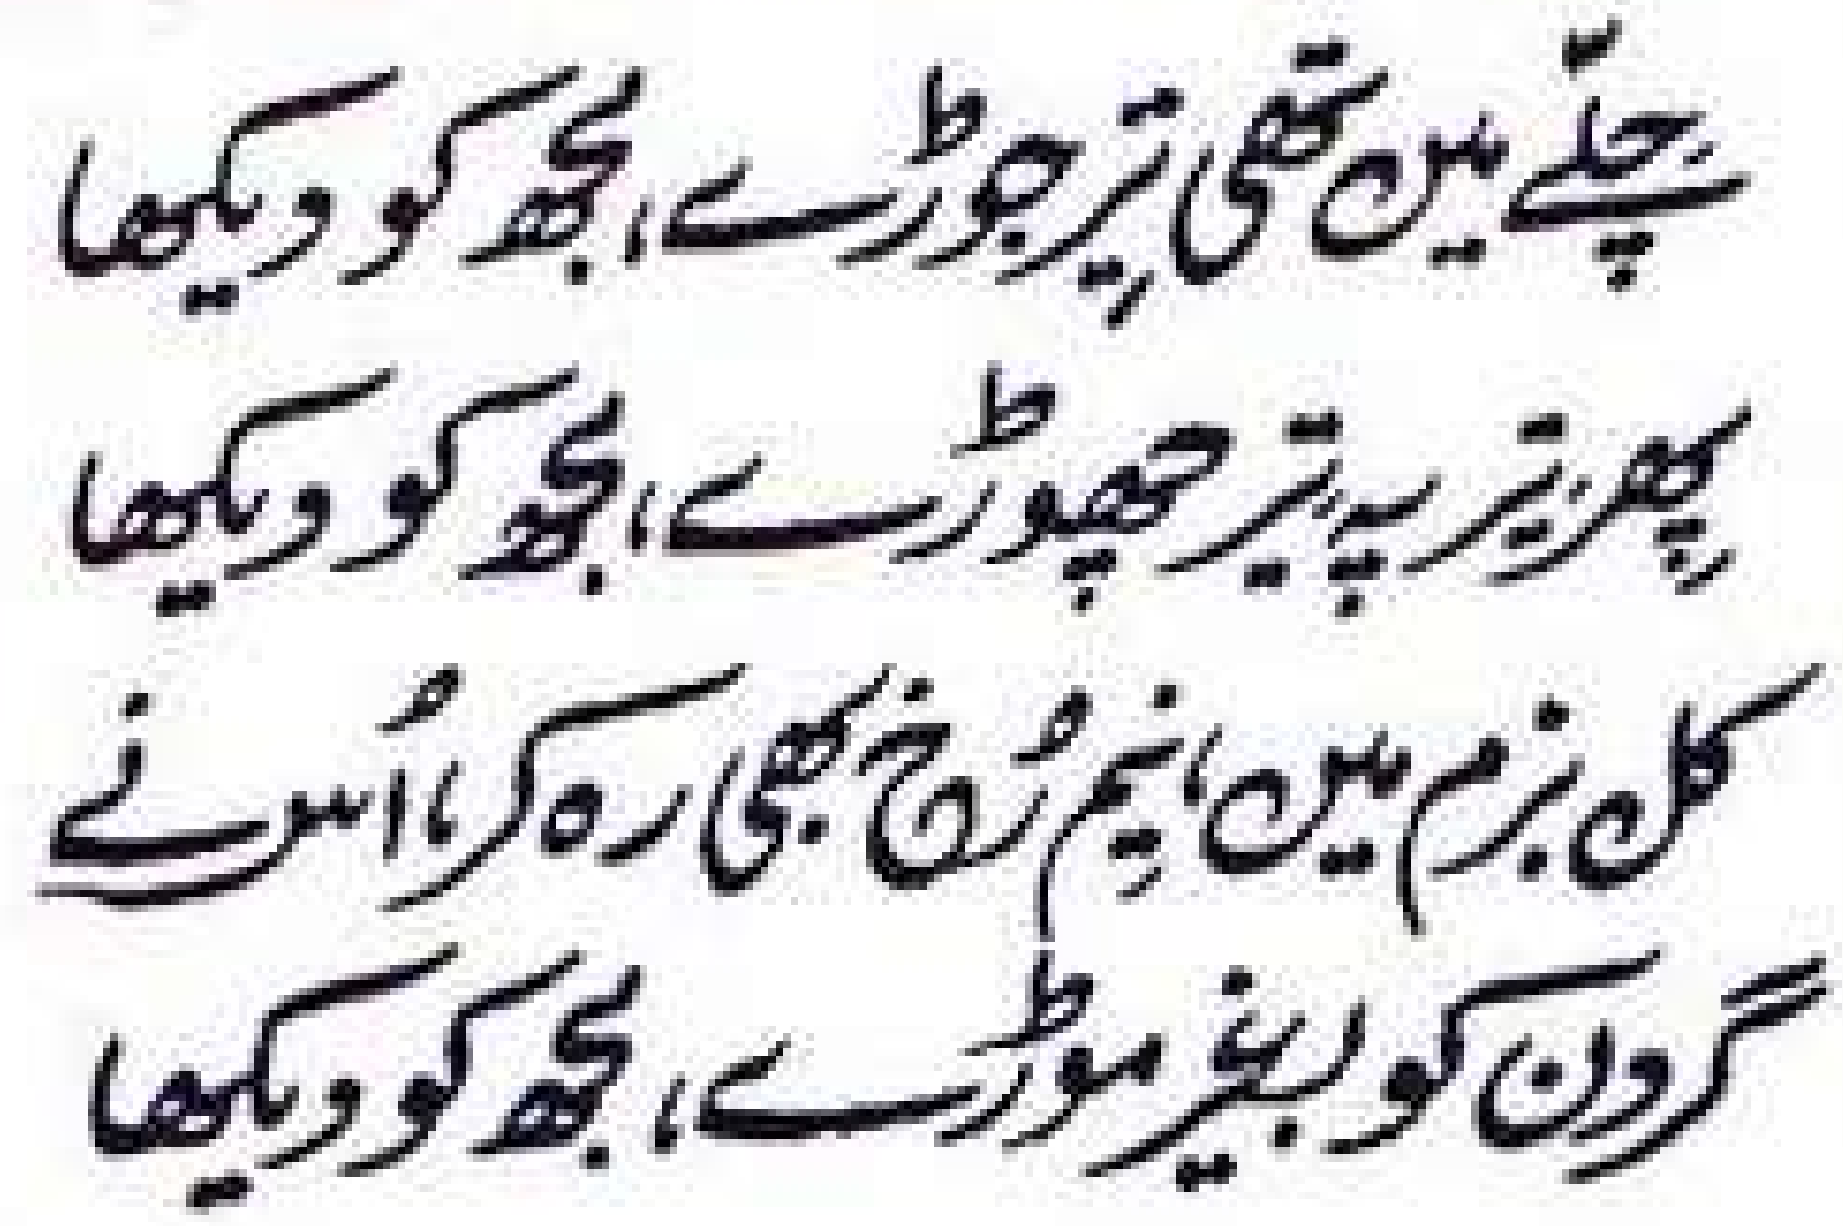 چلّے میں تھی تیر جوڑے، مجھ کو دیکھا
پھر تیر پہ تیر چھوڑے، مجھ کو دیکھا
کل بزم میں، نیم رُخ بھی رہ کر، اُس نے
گردن کو بغیر موڑے، مجھ کو دیکھا